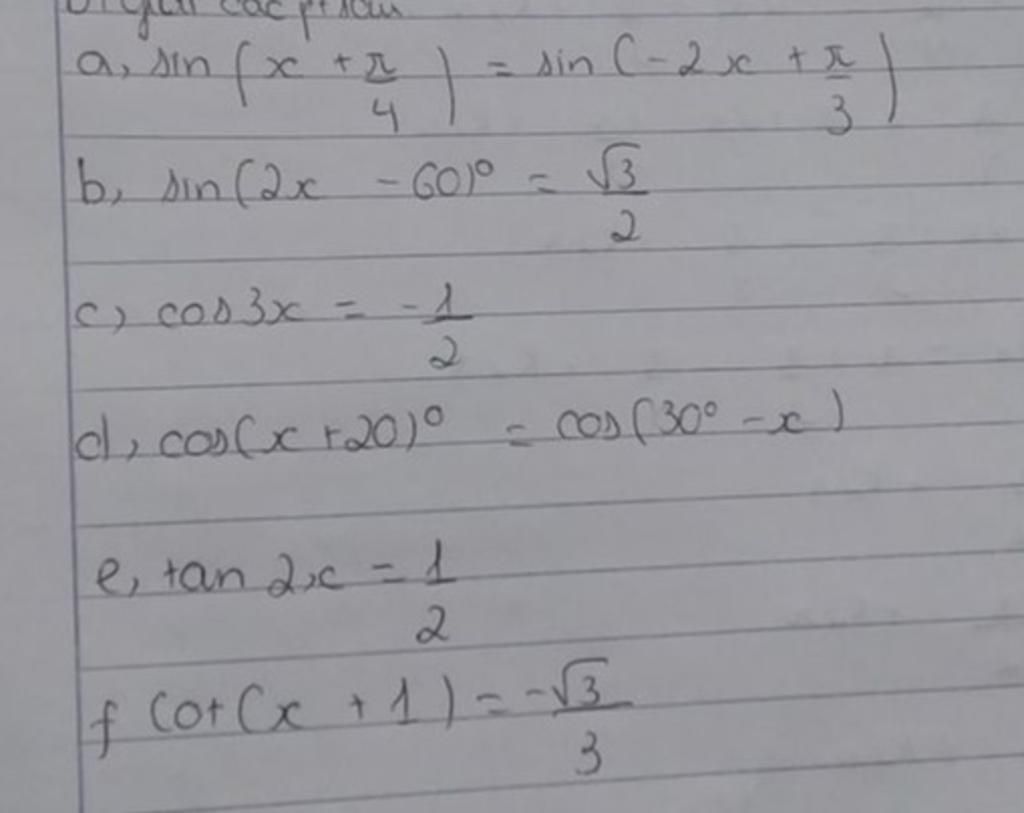 a, sin(x + π/4) = sin(-2x + π/3)
b, sin(2x - 60)° = √3/2
c, cos3x = -1/2
d, cos(x + 20)° = cos(30° - x)
e, tan 2x = 1/2
f cot(x + 1) = -√3/3